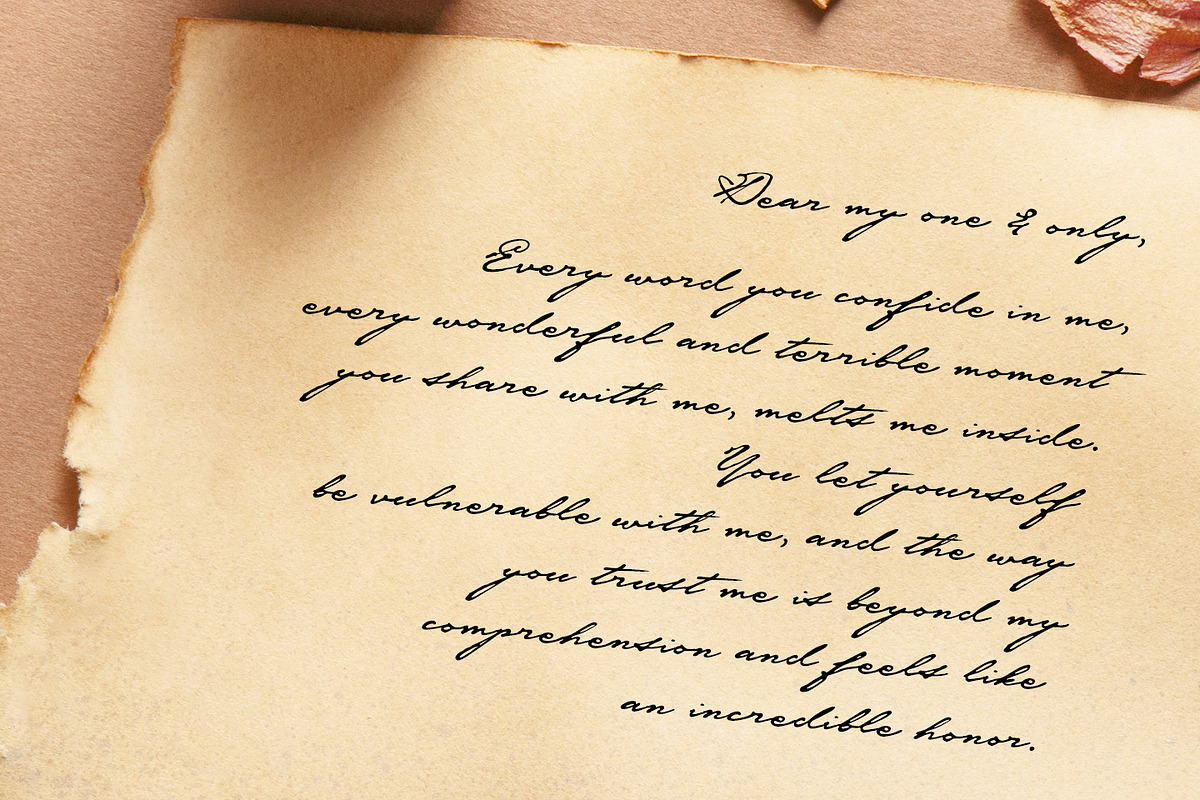 Dear my one & only,
Every word you confide in me,
every wonderful and terrible moment
you share with me, melts me inside.
You let yourself
be vulnerable with me, and the way
you trust me is beyond my
comprehension and feels like
an incredible honor.